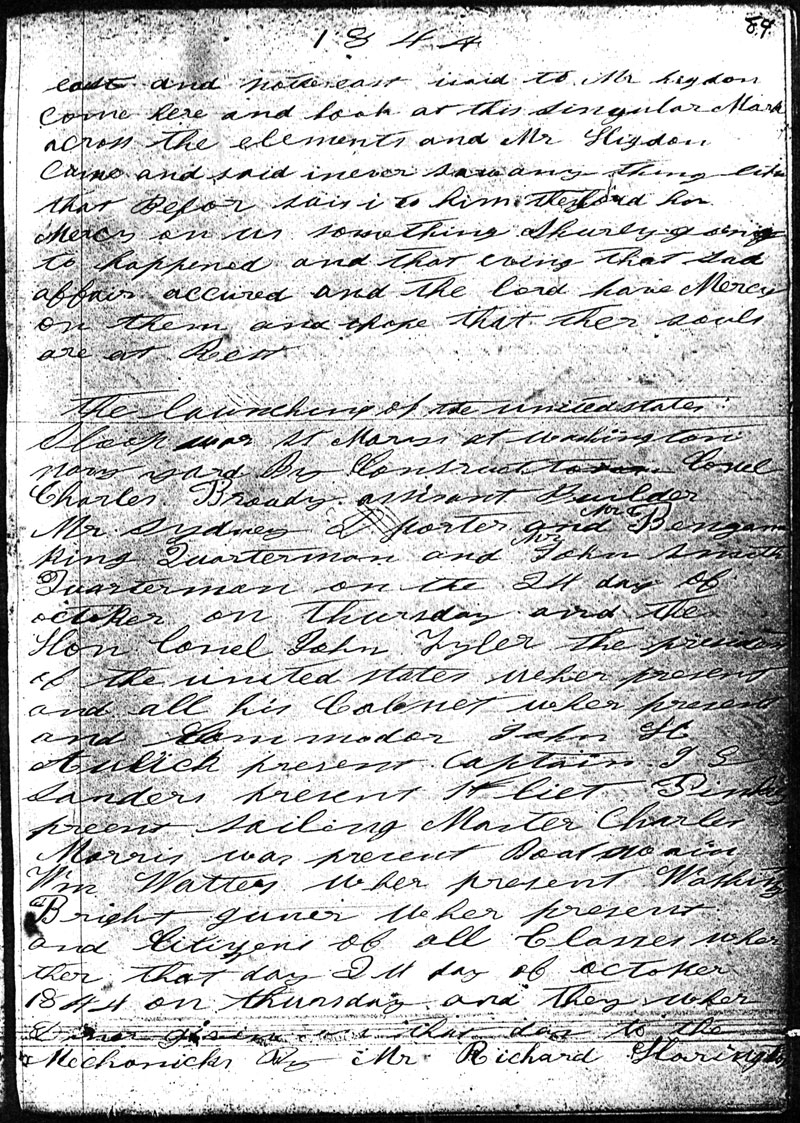 89
1844
east and notheast i said to Mr higdon
Come here and look at this Singular Mark
across the elements and Mr Higdon
Came and said i never saw any thing like
that Befor sais i to him the lord hav
Mercy on us something Shurly going
to happened and that eving that sad
affair accured and the lord have Mercy
on them and i hope that ther souls
are at Rest
the launching of the united states
Sloop war St Marys at washington
navy yard By Constructor Conel
Charles Broady assisant Builder
Mr Sydney porter and Mr Bengamn
King Quarterman and Mr John Smith
Quarterman on the 24 day of
october on thursday and the
Hon Conel John Tyler the presiden
of the united states wher present
and all his Cabnet wher present
and Commodor John H
Aulick present Captain I S
Sanders present 1st liet
preent sailing Master Charles
Morris was present Boatswain
Wm Watters wher present
Bright guner wher present
and Citizens of all Classes wher
ther that day 24 day of october
1844 on thursday and they wher
Diner given us that day to the
Mechanicks By Mr Richard